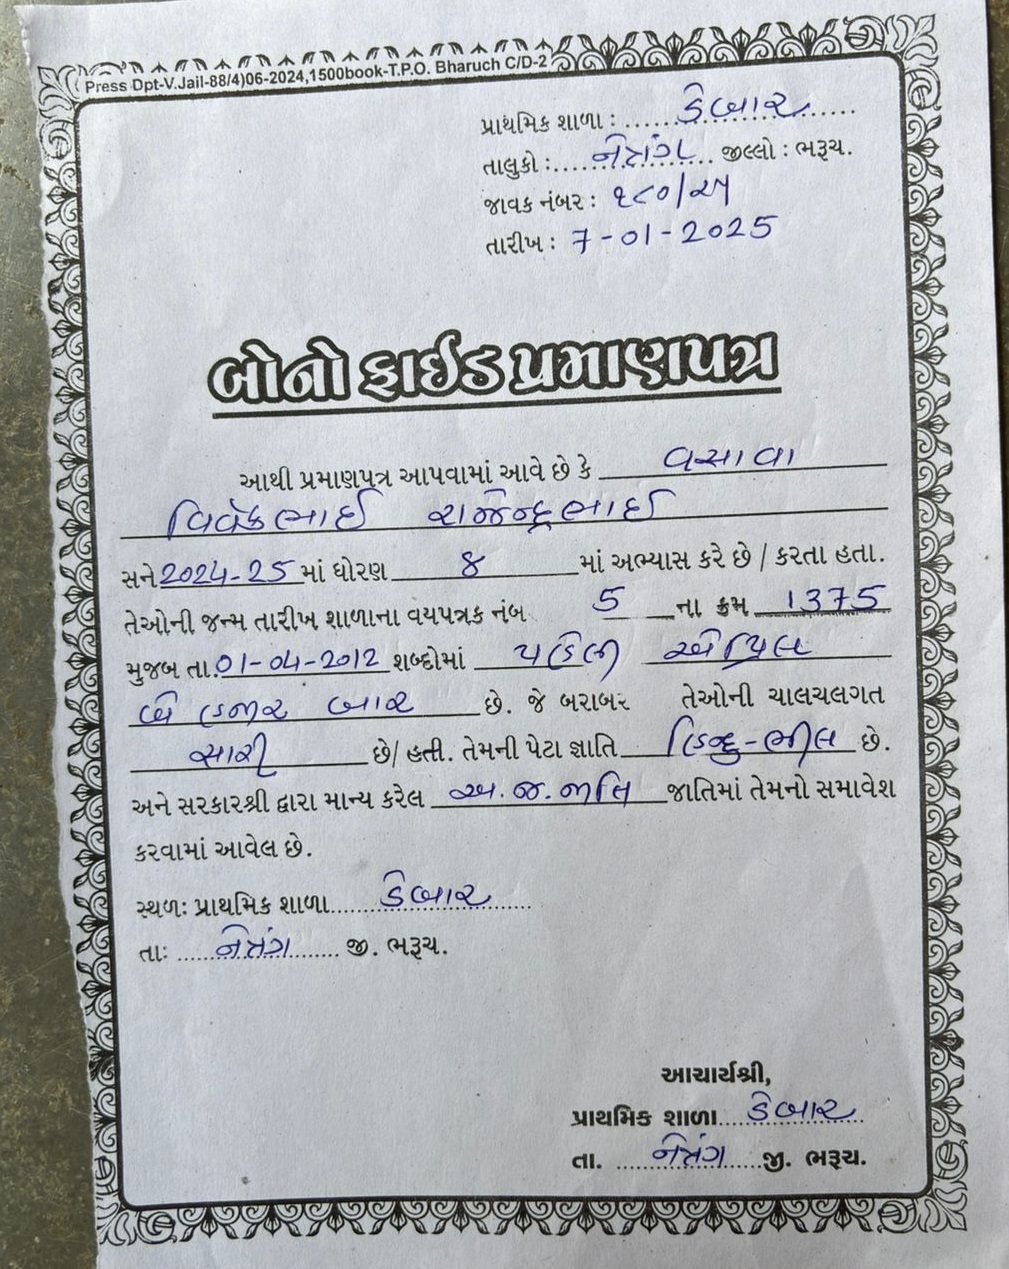 Press Dpt-V.Jail-88/4)06-2024,1500book-T.P.O. Bharuch C/D-2
પ્રાથમિક શાળા : કેબાર
તાલુકો : નેત્રંગ જીલ્લો : ભરૂચ.
જાવક નંબર : ૧૮૦/૨૫
તારીખ : 7-01-2025
બોનો ફાઈડ પ્રમાણપત્ર
આથી પ્રમાણપત્ર આપવામાં આવે છે કે વસાવા
વિવેકભાઈ રાજેન્દ્રભાઈ
સને 2024-25 માં ધોરણ 8 માં અભ્યાસ કરે છે / કરતા હતા.
તેઓની જન્મ તારીખ શાળાના વયપત્રક નંબ 5 ના ક્રમ 1375
મુજબ તા. 01-04-2012 શબ્દોમાં પહેલી એપ્રિલ
બે હજાર બાર છે. જે બરાબર તેઓની ચાલચલગત
સારી છે/ હતી. તેમની પેટા જ્ઞાતિ હિન્દુ-ભીલ છે.
અને સરકારશ્રી દ્વારા માન્ય કરેલ અ.જ.જાતિ જાતિમાં તેમનો સમાવેશ
કરવામાં આવેલ છે.
સ્થળ: પ્રાથમિક શાળા કેબાર
તા: નેત્રંગ જી. ભરૂચ.
આચાર્યશ્રી,
પ્રાથમિક શાળા કેબાર
તા. નેત્રંગ જી. ભરૂચ.